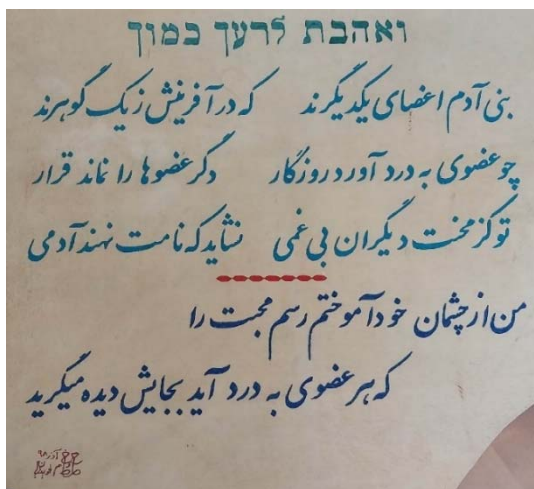 ואהבת לרעך כמוך
بنی آدم اعضای یکدیگرند که در آفرینش ز یک گوهرند
چو عضوی به درد آورد روزگار دگر عضوها را نماند قرار
تو کز محنت دیگران بی غمی نشاید که نامت نهند آدمی
من از چشمان خود آموختم رسم محبت را
که هر عضوی به درد آید بجایش دیده میگرید
آذر ۹۸